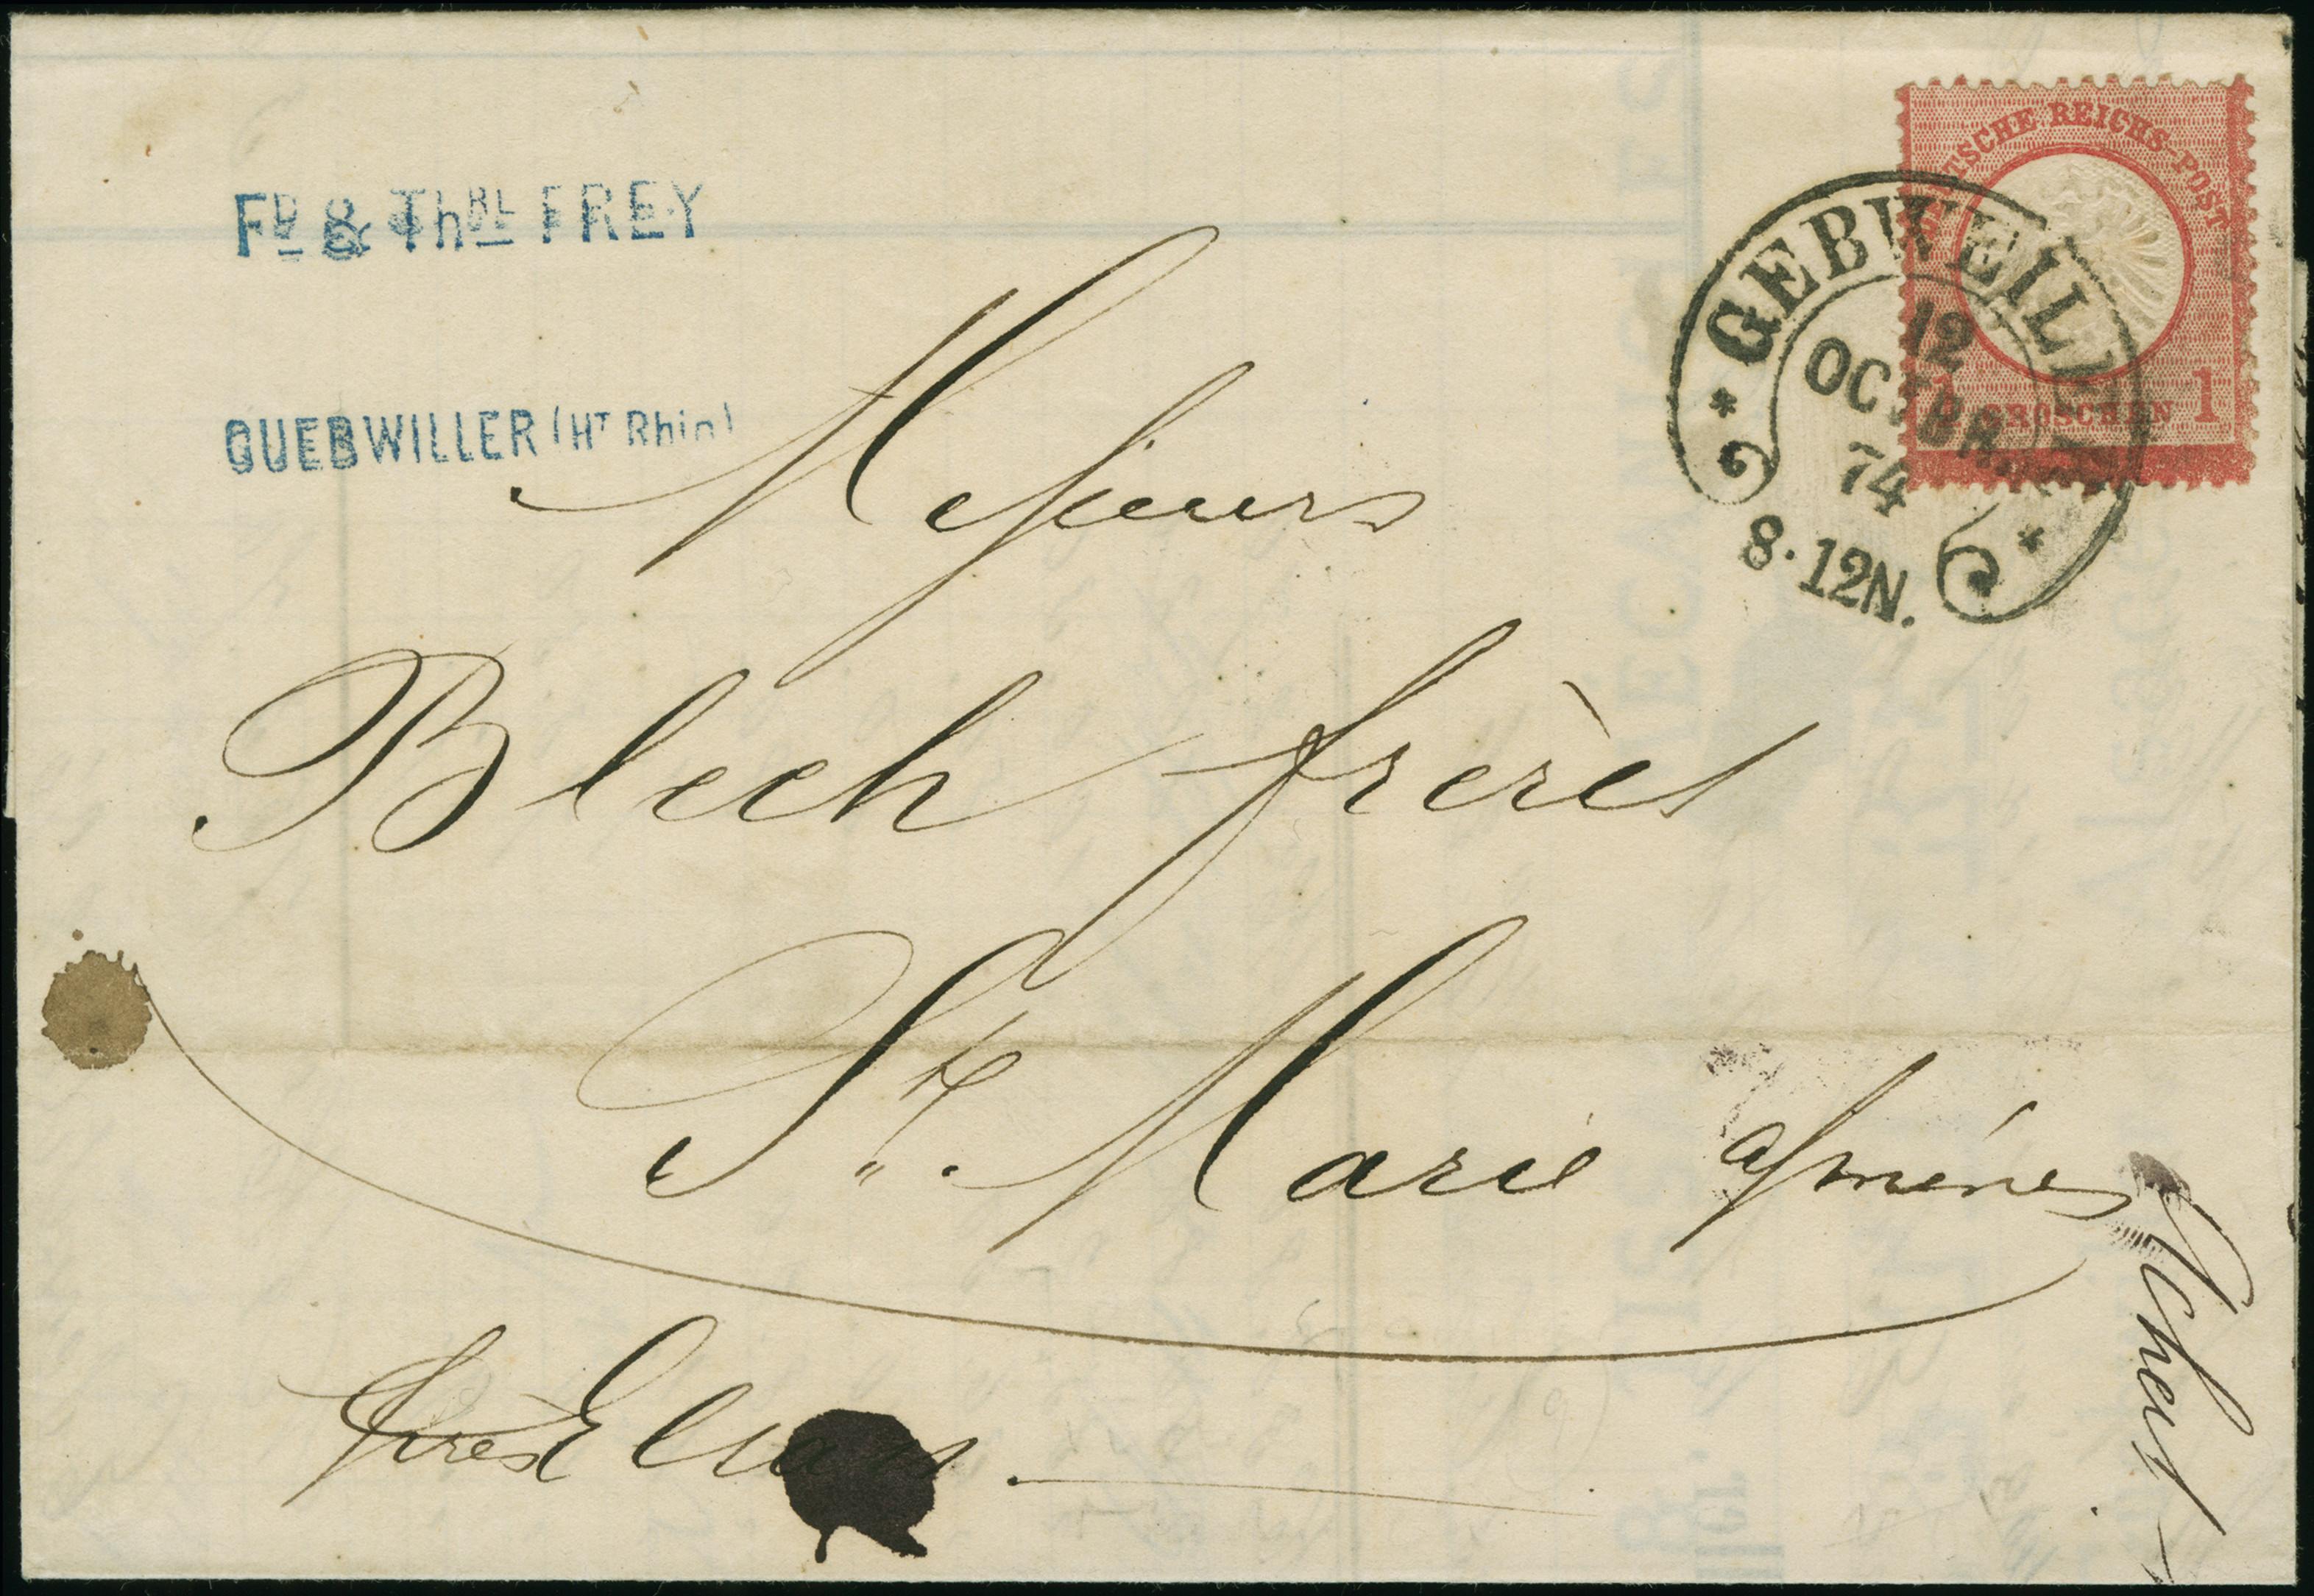 FD & ThBL FREY
GUEBWILLER (HT Rhin)
DEUTSCHE REICHS-POST
1 GROSCHEN 1
GEBWEILER
12
OCTBR.
74
8·12N.
Messieurs
Blech frères
Ste Marie a/mines